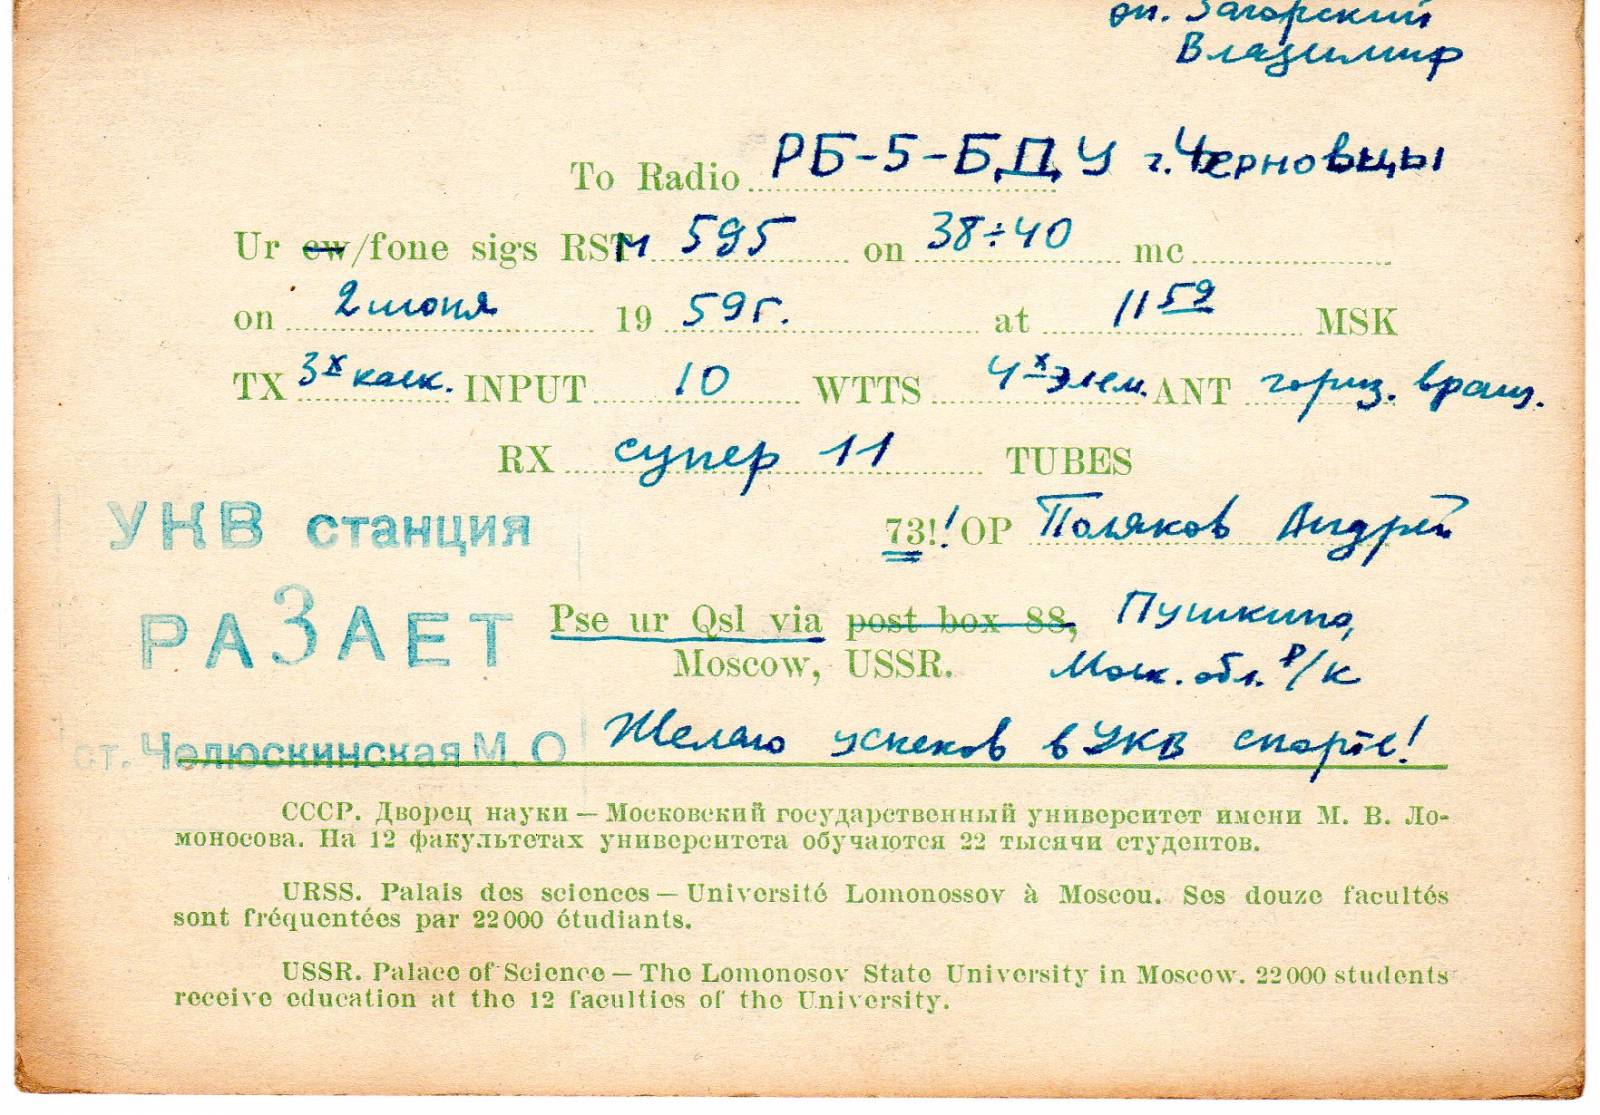 оп. Загорский
Владимир
To Radio РБ-5-БДУ г. Черновцы
Ur cw/fone sigs RSTм 595 on 38÷40 mc
on 2 июня 19 59г. at 11 59 MSK
TX 3х каск. INPUT 10 WTTS 4х элем. ANT гориз. вращ.
RX супер 11 TUBES
УКВ станция
73!! OP Поляков Андрей
РА3АЕТ
Pse ur Qsl via post box 88, Пушкино,
Moscow, USSR. Моск. обл. Р/К
ст. Челюскинская М.О
Желаю успехов в УКВ спорте!
СССР. Дворец науки — Московский государственный университет имени М. В. Ло-
моносова. На 12 факультетах университета обучаются 22 тысячи студентов.
URSS. Palais des sciences — Université Lomonossov à Moscou. Ses douze facultés
sont fréquentées par 22 000 étudiants.
USSR. Palace of Science — The Lomonosov State University in Moscow. 22 000 students
receive education at the 12 faculties of the University.